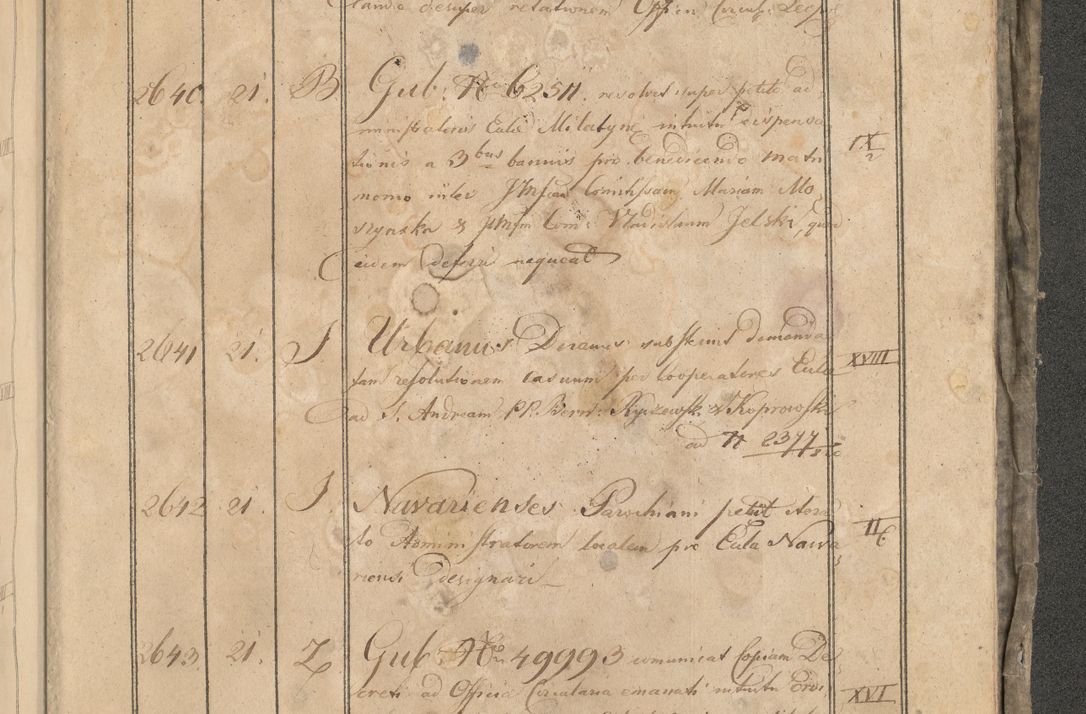 desuper relationem Officii Circul: Leop:
2640. 21. B Gub. No 62511. resolvit super petito ad
ministratoris Eccla Milatyn intuitu dispensa
tionis a 3bus bannis pro benedicendo matri
monio inter Comitissam Mariam Mo
szynska & Com: Vladislaum Jelski, quod
eidem deferri nequeat
IX/2
2641 21. S Urbanus Decanus substernit demanda
tam resolutionem casuum per Cooperatores Eccla
ad S. Andream PP. Bern: & Koprowski
ad N 2377
XVIII
2642 21. S. Navarienses Parochiani petit itera
to Administratorem localem pro Eccla Nava
riensi designari
II
2643. 21. Z Gub: No 49993 comunicat Copiam De
creti ad Officia Circularia emanati intuitu
XVI